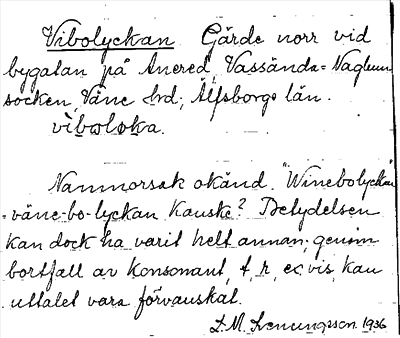 Vibolyckan Gärde norr vid
bygatan på Anered, Vassända-Naglum
socken, Väne hd, Älfsborgs län.
viboloka.
Namnorsak okänd. "Winebolyckan"
= väne-bo-lyckan kanske? Betydelsen
kan dock ha varit helt annan, genom
bortfall av konsonant, t, r, ex.vis, kan
uttalet vara förvanskat.
L. M. Svenungsson 1936